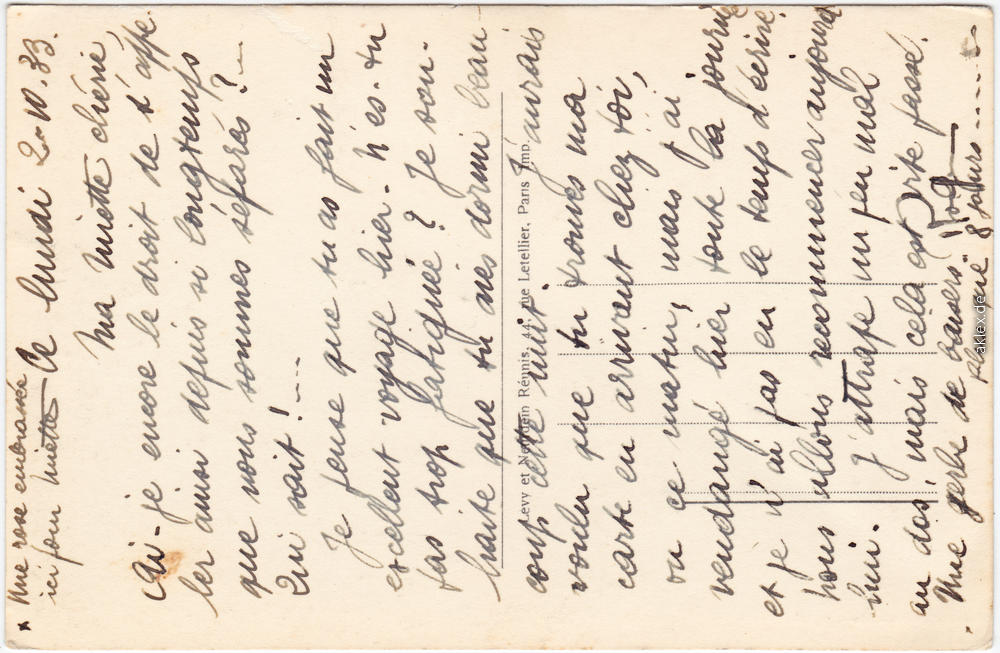 Une rose embrassée
ici pour Miette
Ce lundi 2-10.33.
Ma Miette chérie,
Ai-je encore le droit de t'appe-
ler ainsi depuis si longtemps
que nous sommes séparés ?
Qui sait !
Je pense que tu as fait un
excellent voyage hier. N'es-tu
pas trop fatiguée ? Je sou-
haite que tu aies dormi beau
coup cette nuit. J'aurais
voulu que tu trouves ma
carte en arrivant chez toi,
ou ce matin, mais j'ai
vendangé hier toute la journée
et je n'ai pas eu le temps d'écrire
Nous allons recommencer aujourd
hui. J'attrape un peu mal
au dos, mais cela est vite passé.
Une gerbe de baisers
8 jours
Levy et Neurdein Réunis, 44, rue Letellier, Paris Imp.
aklex.de